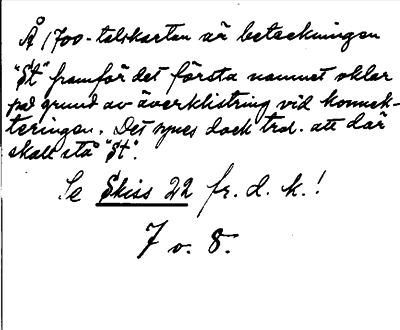 Å 1700-talskartan är beteckningen
"St" framför det första namnet oklar
på grund av överklistring vid konnek-
teringen. Det synes dock trol. att där
skall stå "St".
Se Skiss 22 fr. d. k.!
7 o. 8.